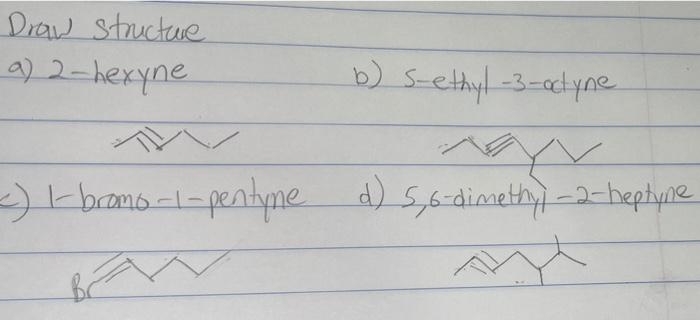 Draw structure
a) 2-hexyne b) 5-ethyl-3-octyne
c) 1-bromo-1-pentyne d) 5,6-dimethyl-2-heptyne
Br